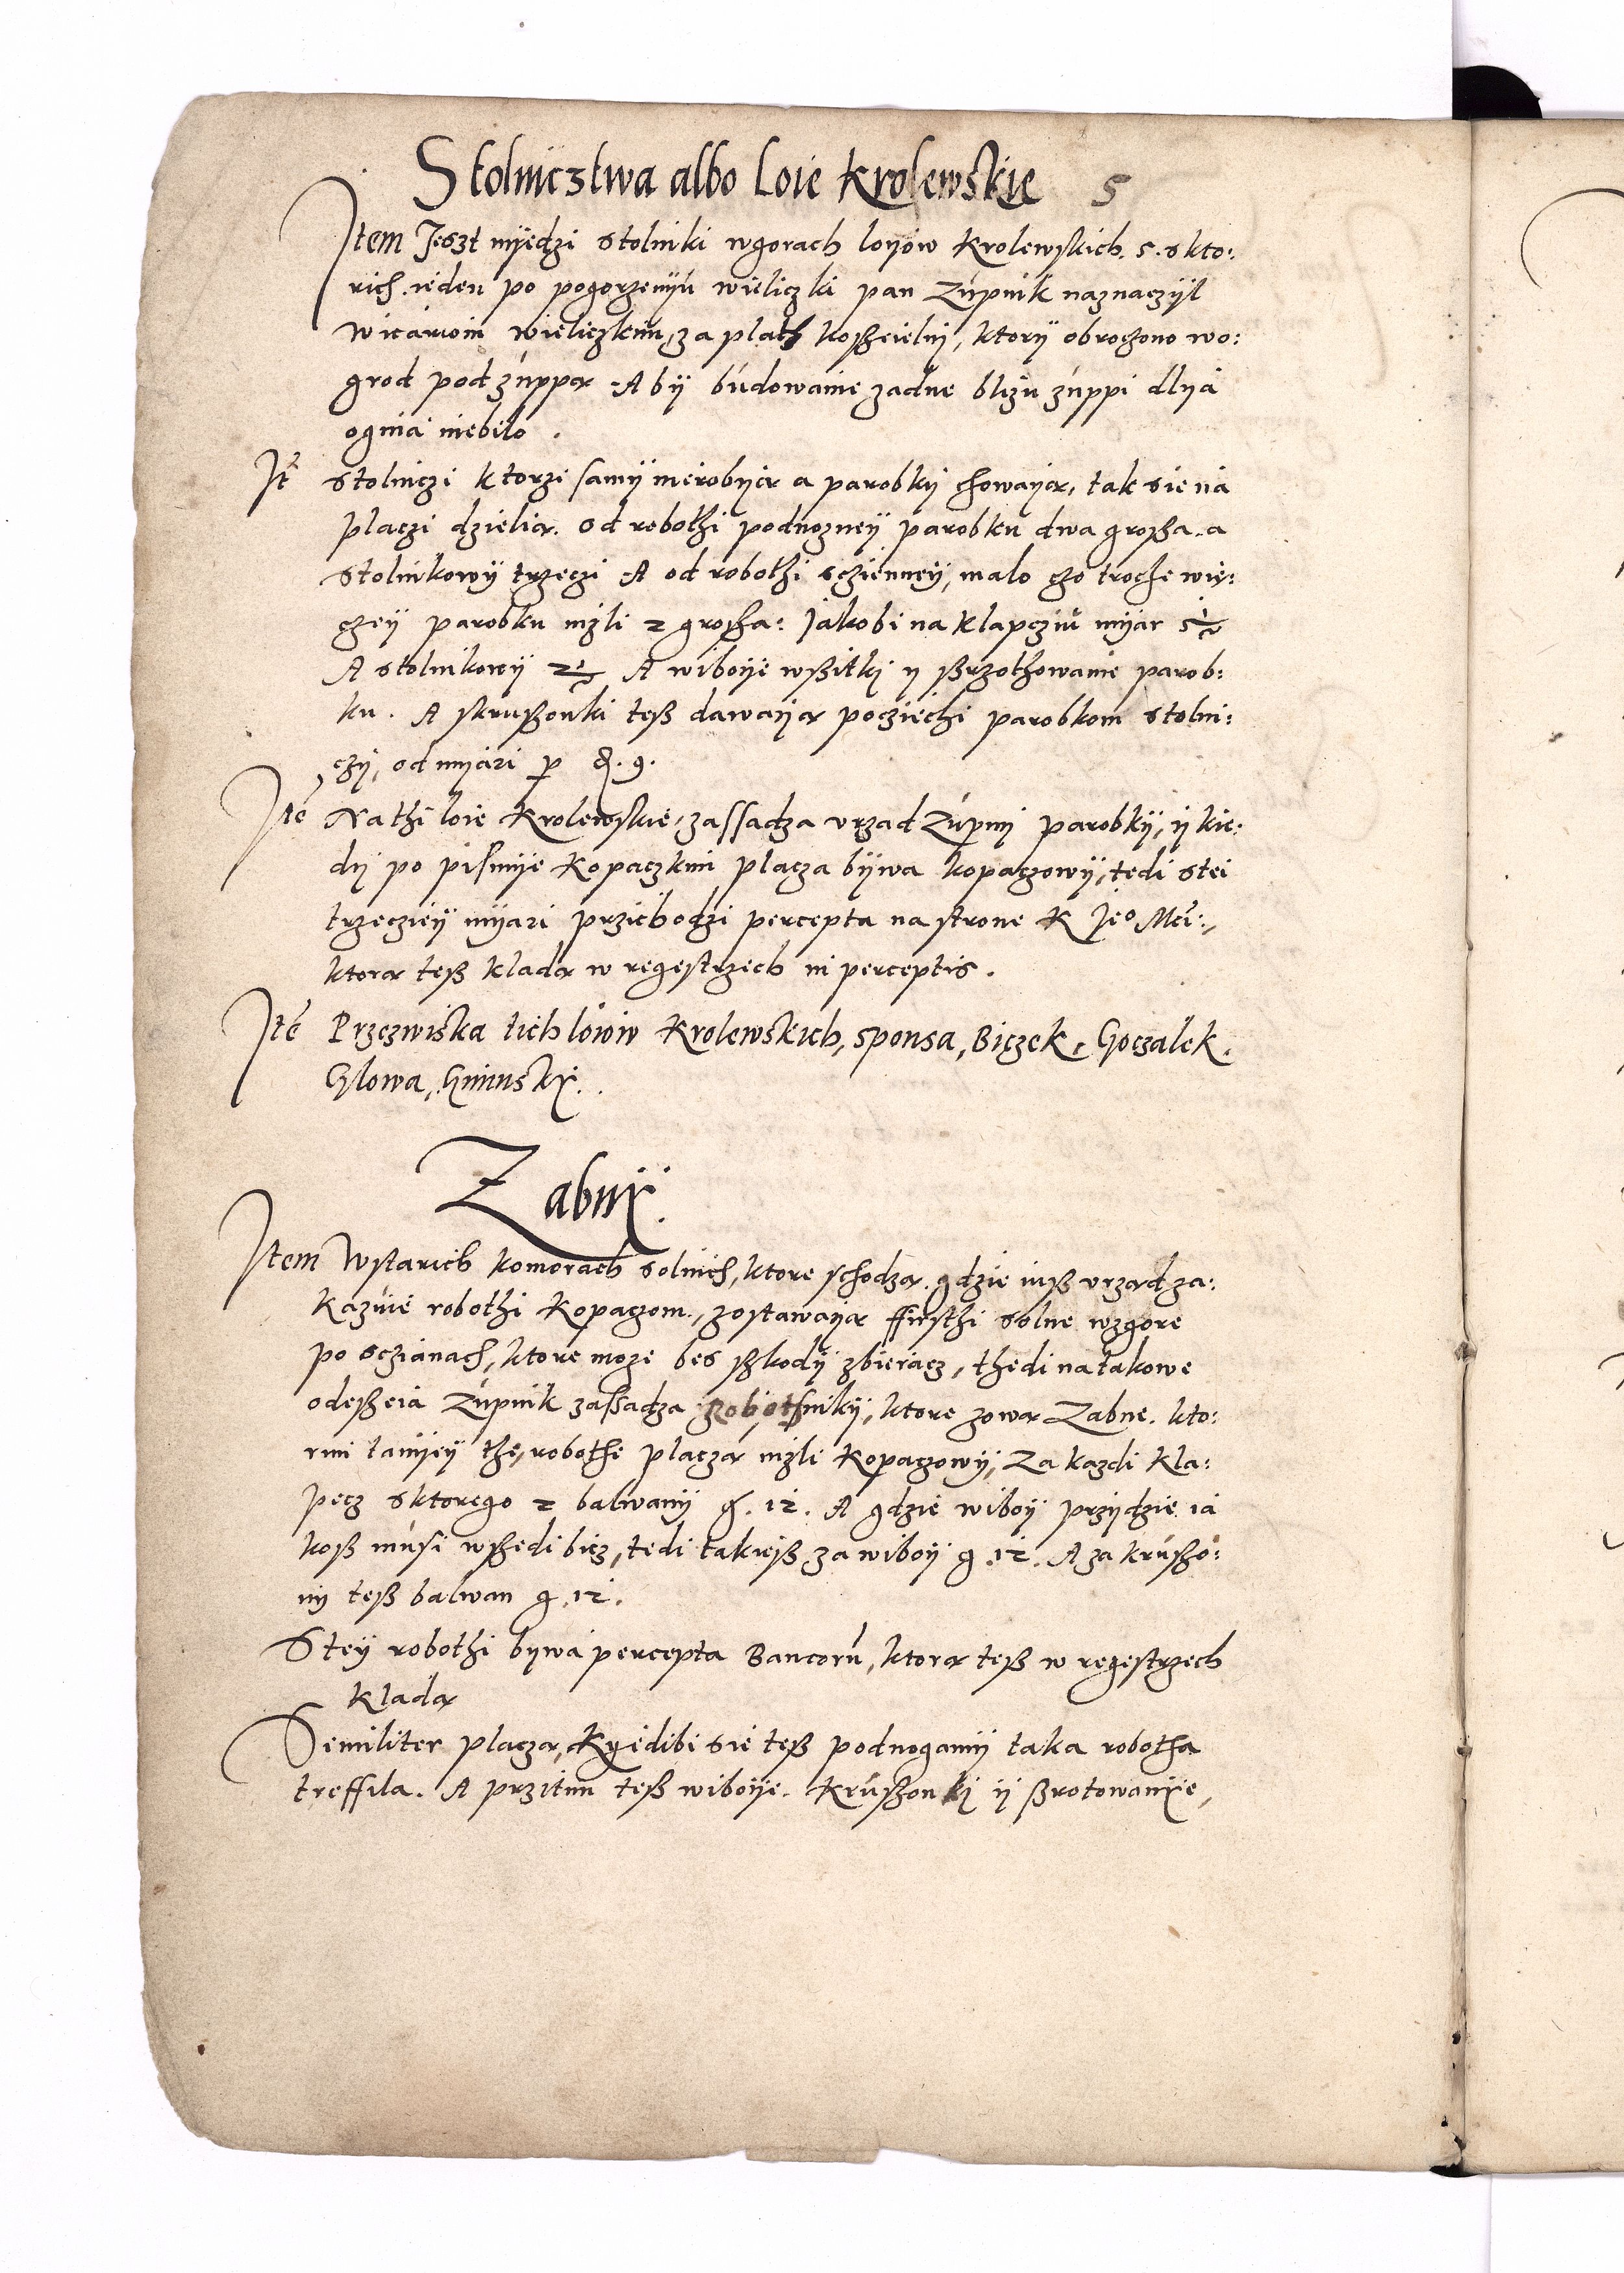 Stolnicztwa albo Loie Krolewskie 5
Item Jeszt myedzi stolniki w gorach loyow Krolewskich. 5. s kto:
rich ieden po pogorzenyu wieliczki pan Zupnik naznaczyl
wicariom wieliczkim, za plath koszcielni, ktory obroczono w o:
grod pod zuppą Aby budowanie zadne blizu zuppi dlya
ognia niebilo.
Ite Stolniczi ktorzi samy nierobyą a parobky chowayą, tak sie na
placzi dzielią. od robothi podnozney parobku dwa grosza. a
stolnikowy trzeczi A od robothi sczienney, malo czo troche wie:
czey parobku nizli 2 grosza: Jakobi na klapcziu myar
A stolnikowy A wiboye wszitki y szrothowanie parob:
ku. A skruszonki tesz dawayą pocziechi parobkom stolni:
czy, od myari p g. 9.
Ite Na thi loie Krolewskie, zassadza vrzad Zupny parobky, y kie:
dy po pismye Kopaczkim placza bywa kopaczowy, tedi s tei
trzecziey myari przichodzi percepta na strone K Jeo Mci:,
ktorą tesz kladą w regestrzech in perceptis.
Ite Przezwiska tich loiow Krolewskich, Sponsa, Biczek, Goczalek.
Glowa, Gninsky.
Zabny.
Item W starich komorach solnich, ktore schodzą. gdzie iusz vrząd za:
kazuie robothi Kopaczom, zostawayą ffusthi solne wzgore
po sczianach, ktore moze bes szkody zbieracz, thedi na takowe
odeszcia Zupnik zassadza Robothniky, ktore zową Zabne. kto:
rim tanyey the, robothe placzą nizli Kopaczowy, Za kazdi kla:
pecz s ktorego 2 balwany g. 12. A gdzie wiboy przydzie ia
kosz musi wszedi bicz, tedi takiesz za wiboy g. 12. A za kruszo:
ny tesz balwan g. 12.
S tey robothi bywa percepta Bancoru, ktorą tesz w regestrzech
kladą
Semiliter placzą, Kyedibi sie tesz pod nogamy taka robotha
treffila. A przitim tesz wiboye. Kruszonky y szrotowanye,